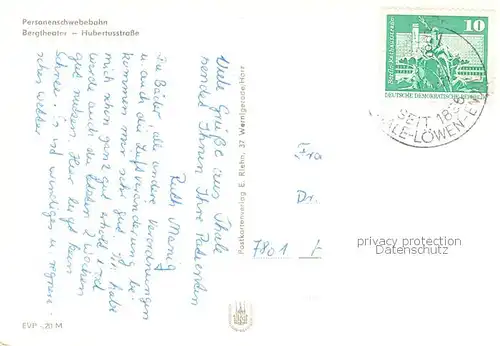 Personenschwebebahn
Bergtheater – Hubertusstraße
Viele Grüße aus Thale
sendet Ihnen Ihre Patientin
Ruth
Die Bäder alle andere Verordnungen
u. auch die Luftveränderung be-
kommen mir sehr gut. Ich habe
mich schon ganz gut erholt und
werde auch die letzten 2 Wochen
gut nutzen. Hier liegt kein
Schnee. Es ist windiges u.
Wetter
EVP -,20 M
Postkartenverlag E. Riehn, 37 Wernigerode/Harz
10
Berlin
DEUTSCHE DEMOKRATISCHE
SEIT 1836
THALE-LÖWEN
Dr.
7801
privacy protection
Datenschutz